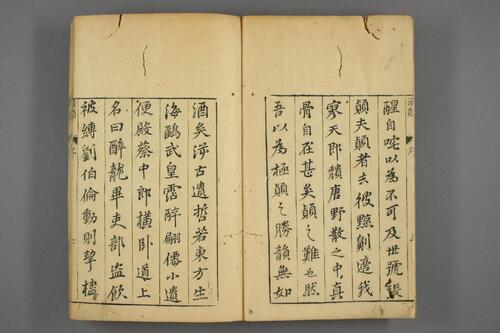 醒自咤以為不可及世號張
顛夫顛者去彼劓我
寥天即穨唐野散之中真
骨自在甚矣顛之難也然
吾以為極顛之勝韻無如
酒矣古遺哲若東方生
海鷗武皇霑醉翩僊小遺
便殿蔡中郎橫卧道上
名曰醉龍畢吏部盜飲
被縛劉伯倫動則挈榼